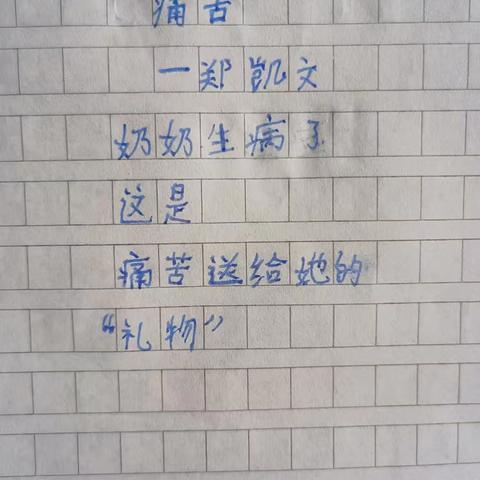 痛苦
一郑凯文
奶奶生病了
这是
痛苦送给她的
“礼物”